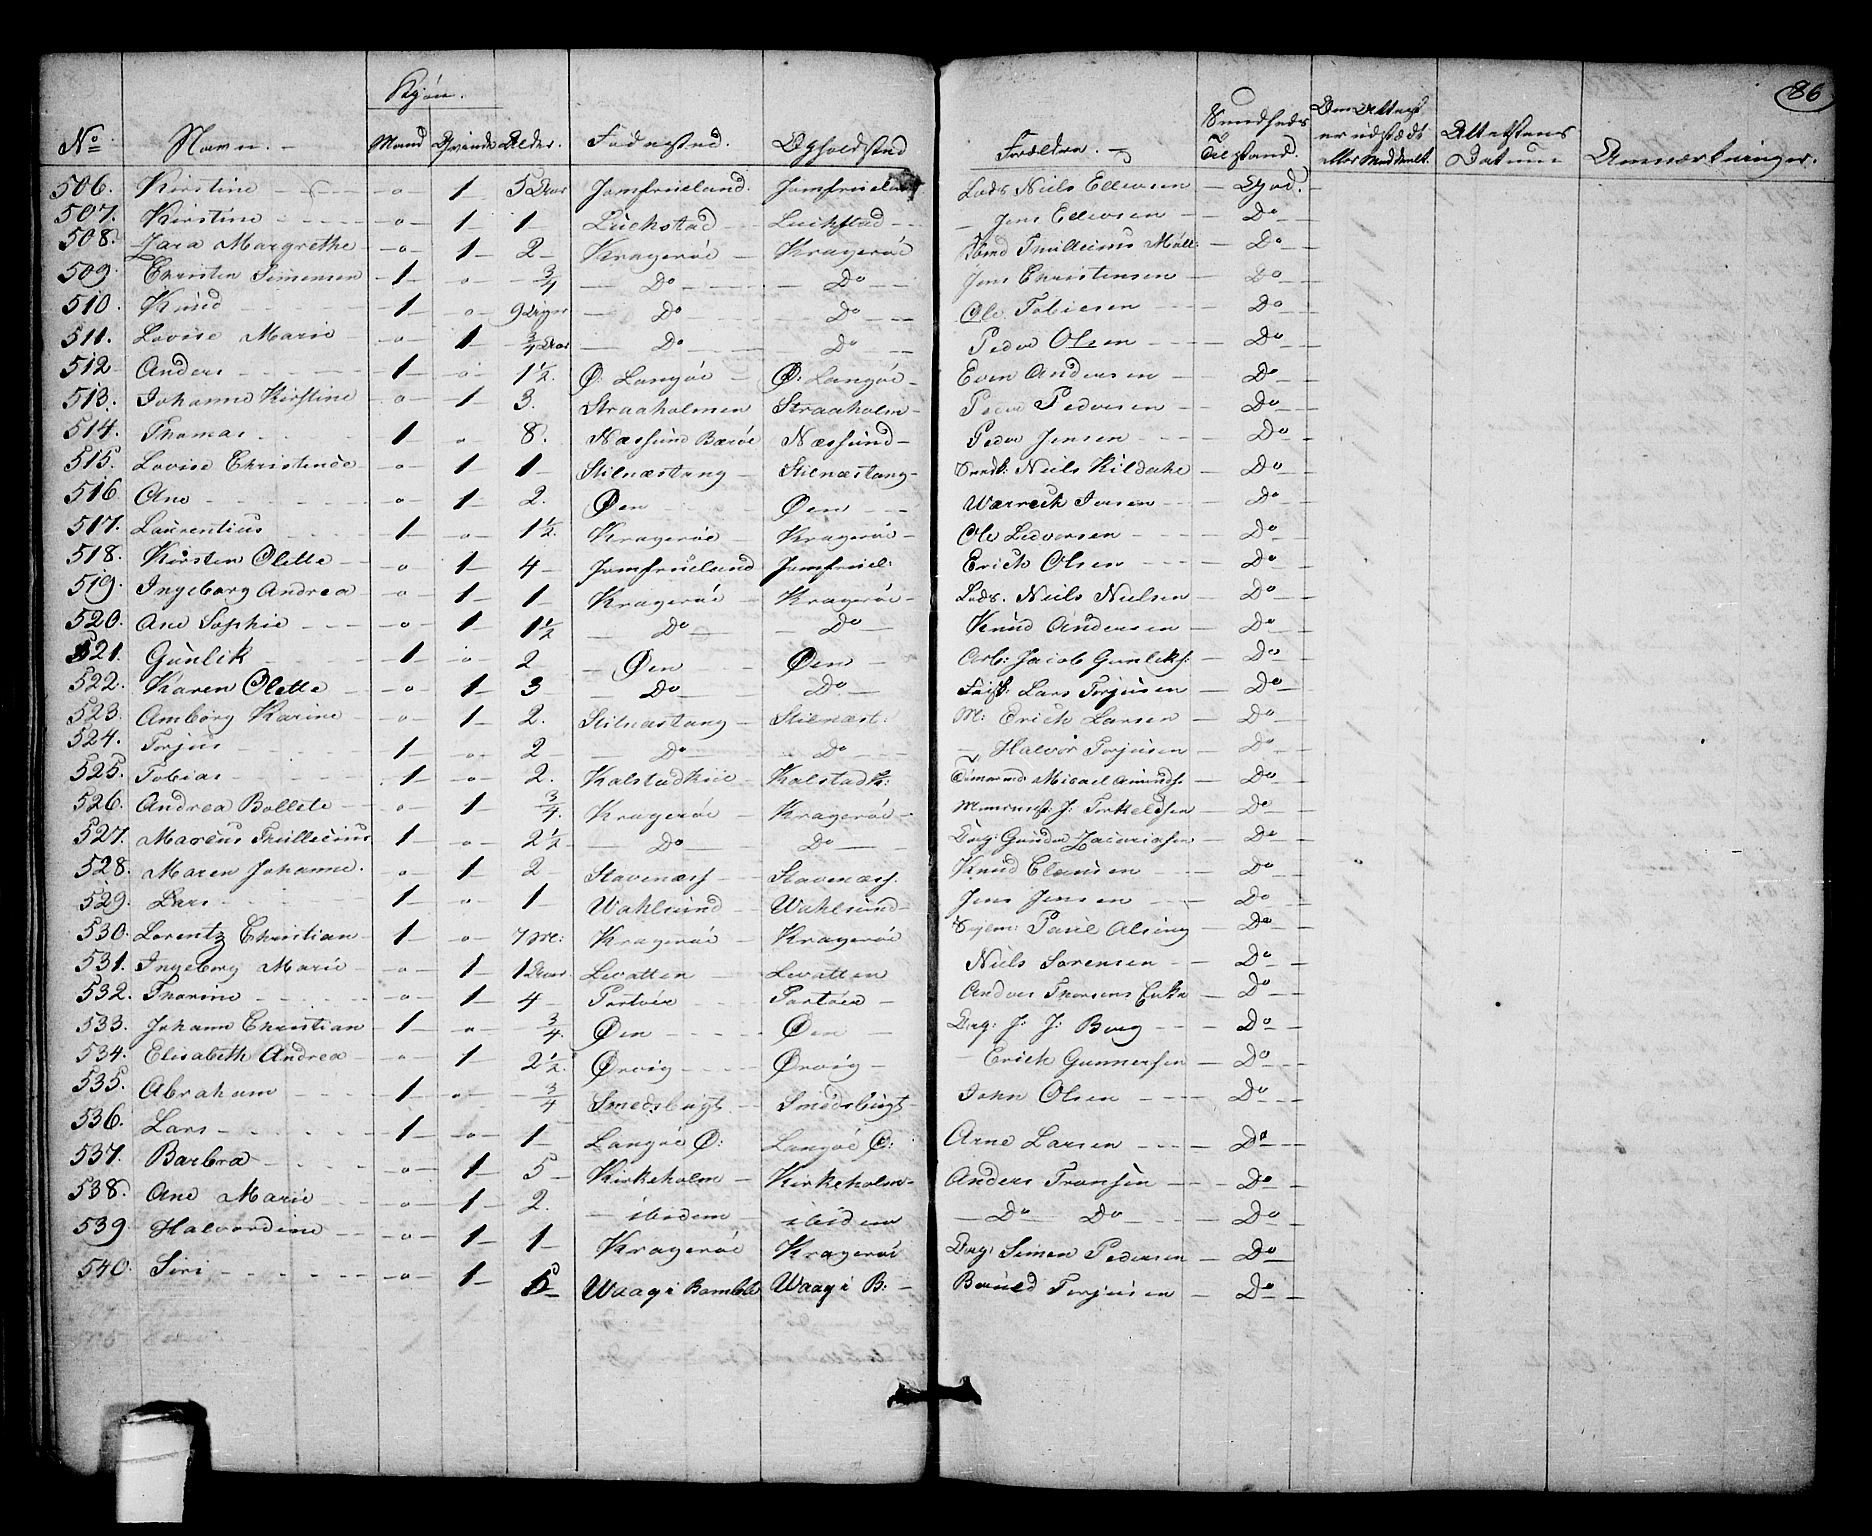 86
Kjön.
No Navn. Mand Qvinde Alder. Fødested. Opholdsted Forældre. Sundheds Tilstand. Attestens Datum Anmærkninger.
506. Kirstine o 1 5 Aar Jomfrueland. Jomfrueland Lods Niels Ellevsen God.
507. Kirstine o 1 1 Luckstad Luckstad Jens Ellevsen Do
508. Zara Margrethe o 1 2 Kragerøe Kragerøe Thullesius Møll: Do
509. Christen Simensen 1 o 3/4 Do Do Jens Christensen Do
510. Knud 1 o 9 Do Do Ole Tobiesen Do
511. Lovise Marie o 1 3/4 Aar Do Do Peder Olsen Do
512 Anders 1 o 1 1/2. Ø: Langøe Ø: Langøe Even Andersen Do
513. Johanne Kirstine o 1 3. Straaholmen Straaholm Peder Pedersen Do
514. Thomas 1 o 8. Næssund Barøe Næssund Peder Jensen Do
515. Lovise Christense o 1 1 Stilnæstang Stilnæstang Niels Kildahl Do
516. Ane o 1 2. Øen Øen Iversen Do
517. Laurentius 1 o 1 1/2. Kragerøe Kragerøe Ole Ledvorsen Do
518. Kirsten Olette o 1 4 Jomfrueland Jomfruel: Erich Olsen Do
519. Ingeborg Andrea o 1 1 Kragerøe Kragerøe Lods. Niels Nielsen Do
520. Ane Sophie o 1 1 1/2 Do Do Knud Andersen Do
521. Gunlik 1 o 2 Øen Øen Arb: Jacob Gunliks: Do
522. Karen Olette o 1 3 Do Do Fisk: Lars Torjusen Do
523. Amborg Karine o 1 2. Stilnæstang Stilnæst: M: Erich Larsen Do
524. Torjus 1 o 2 Do Do Halvor Torjusen Do
525. Tobias 1 o 2. Kalstadkiil Kalstadk: Tømermd Micael Amunds. Do
526. Andrea Bollete o 1 3/4. Kragerøe Kragerøe J: Torkeldsen Do
527. Marcus Thullecius 1 o 2 1/2 Do Do Gunder Zacariasen Do
528. Maren Johanne. o 1 2 Stavenæss Stavenæss. Knud Clausen Do
529. Lars 1 o 1 Wahlsund Wahlsund Jens Jensen Do
530. Lorentz Christian 1 o 7 M: Kragerøe Kragerøe Paul Alsing Do
531. Ingeborg Marie o 1 1 Aar Levatten Levatten Niels Sørensen Do
532. Thorine o 1 4 Portøer Portøer Anders Thorsens Enke Do
533. Johann Christian 1 o 3/4. Øen Øen J: J: Borg Do
534. Elisabeth Andrea o 1 2 1/2. Ørvig Ørvig Erich Gunnersen Do
535. Abraham 1 o 3/4 Smedsbugt Smedsbugt John Olsen Do
536. Lars 1 o 1 Langøe Ø: Langøe Ø: Arne Larsen Do
537. Barbra o 1 5 Kirkeholm Kirkeholm Anders Fransen Do
538. Ane Marie o 1 2. ibidem ibidem Do Do Do
539 Halvordine o 1 1 Kragerøe Kragerøe Simen Pedersen Do
540. Siri o 1 Waag i Bamble Waag i B: Torjusen Do